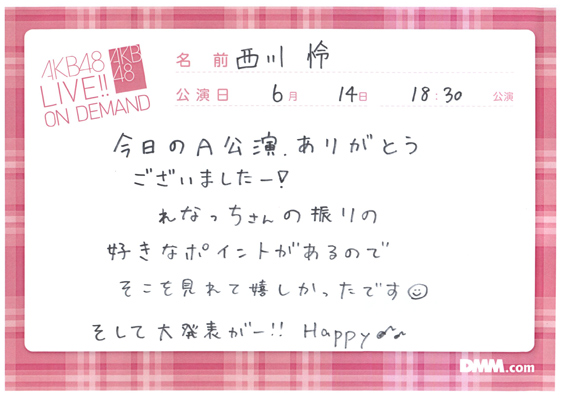 AKB48
LIVE!!
ON DEMAND
AKB
48
名前 西川 怜
公演日 6月 14日 18:30 公演
今日のA公演、ありがとう
ございましたー!
れなっちさんの振りの
好きなポイントがあるので
そこを見れて嬉しかったです☺
そして大発表がー!! Happy♪♪
DMM.com